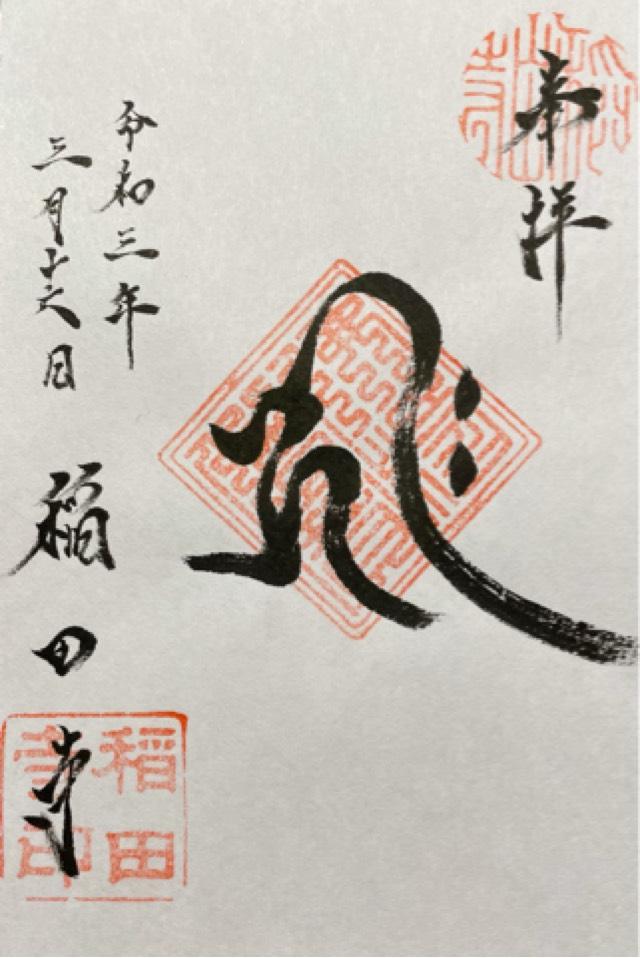 奉拝
令和三年
三月十六日
稲田寺
稲田寺印